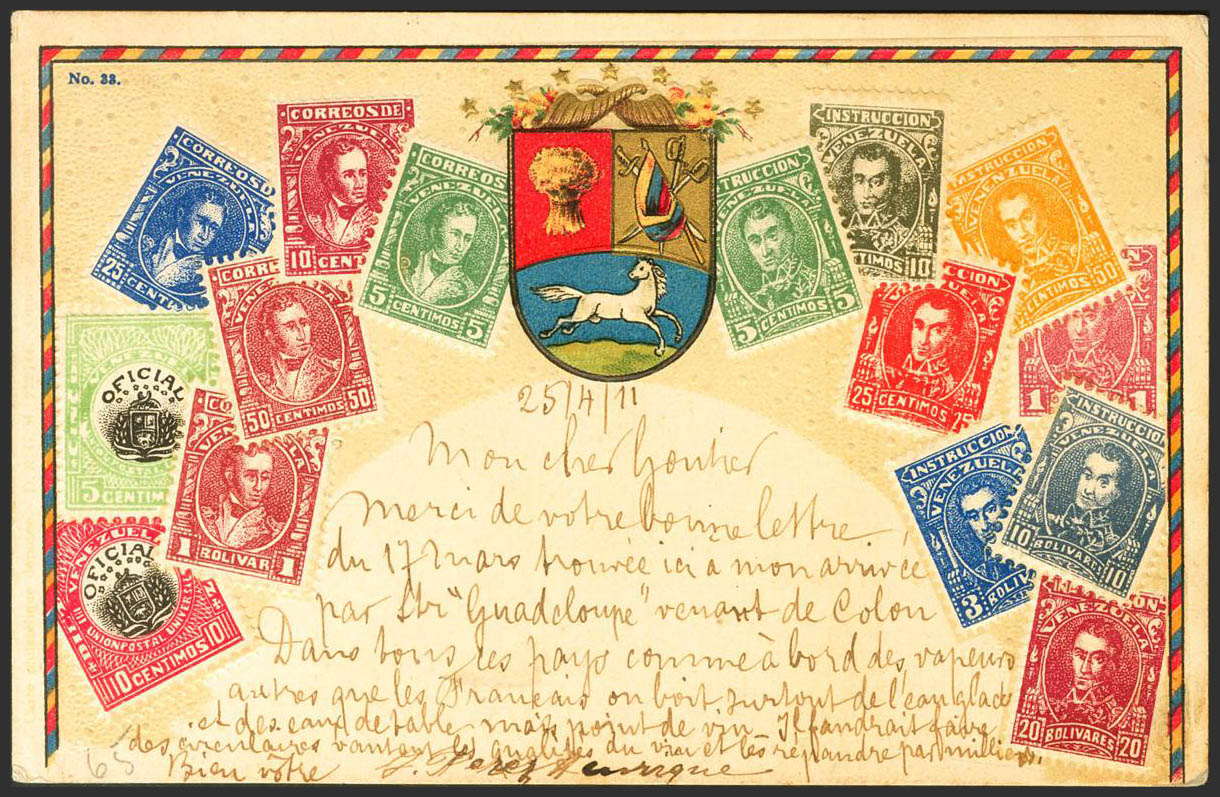 No. 33.
CORREOS DE
VENEZUELA
10 CENT
CORREOS D
VENEZUELA
25 CENTI
CORREOS
VENEZUELA
5 CENTIMOS 5
CORRE
VENEZUELA
50 CENTIMOS 50
VENEZUEL
OFICIAL
5 CENTIMO
CO
VENEZUELA
1 BOLIVAR 1
VENEZUELA
OFICIAL
DIT UNION POSTAL UNIVERSE
10 CENTIMOS 10
INSTRUCCION
VENEZUELA
TIMOS 10
STRUCCION
VENEZUELA
5 CENTIMOS 5
INSTRUCCION
VENENZUELA
CENTIMOS 50
CCION
ZUELA
25 CENTIMOS 25
1 1
INSTRUCCION
VENEZUELA
3 BOLIV
INSTRUCCION
VENEZUELA
10 BOLIVARES 10
ION
VENEZUELA
20 BOLIVARES 20
25/4/11
Mon cher Gontier
Merci de votre bonne lettre
du 17 mars trouvée ici a mon arrivée
par Str "Guadeloupe" venant de Colon
Dans tous ces pays comme à bord des vapeurs
autres que les Français on boit surtout de l'eau glacé
et des eaux de table mais point de vin Il faudrait faire
des circulaires vantant les qualités du vin et les répandre par milliers.
Bien vôtre J. Perez Henrique
65